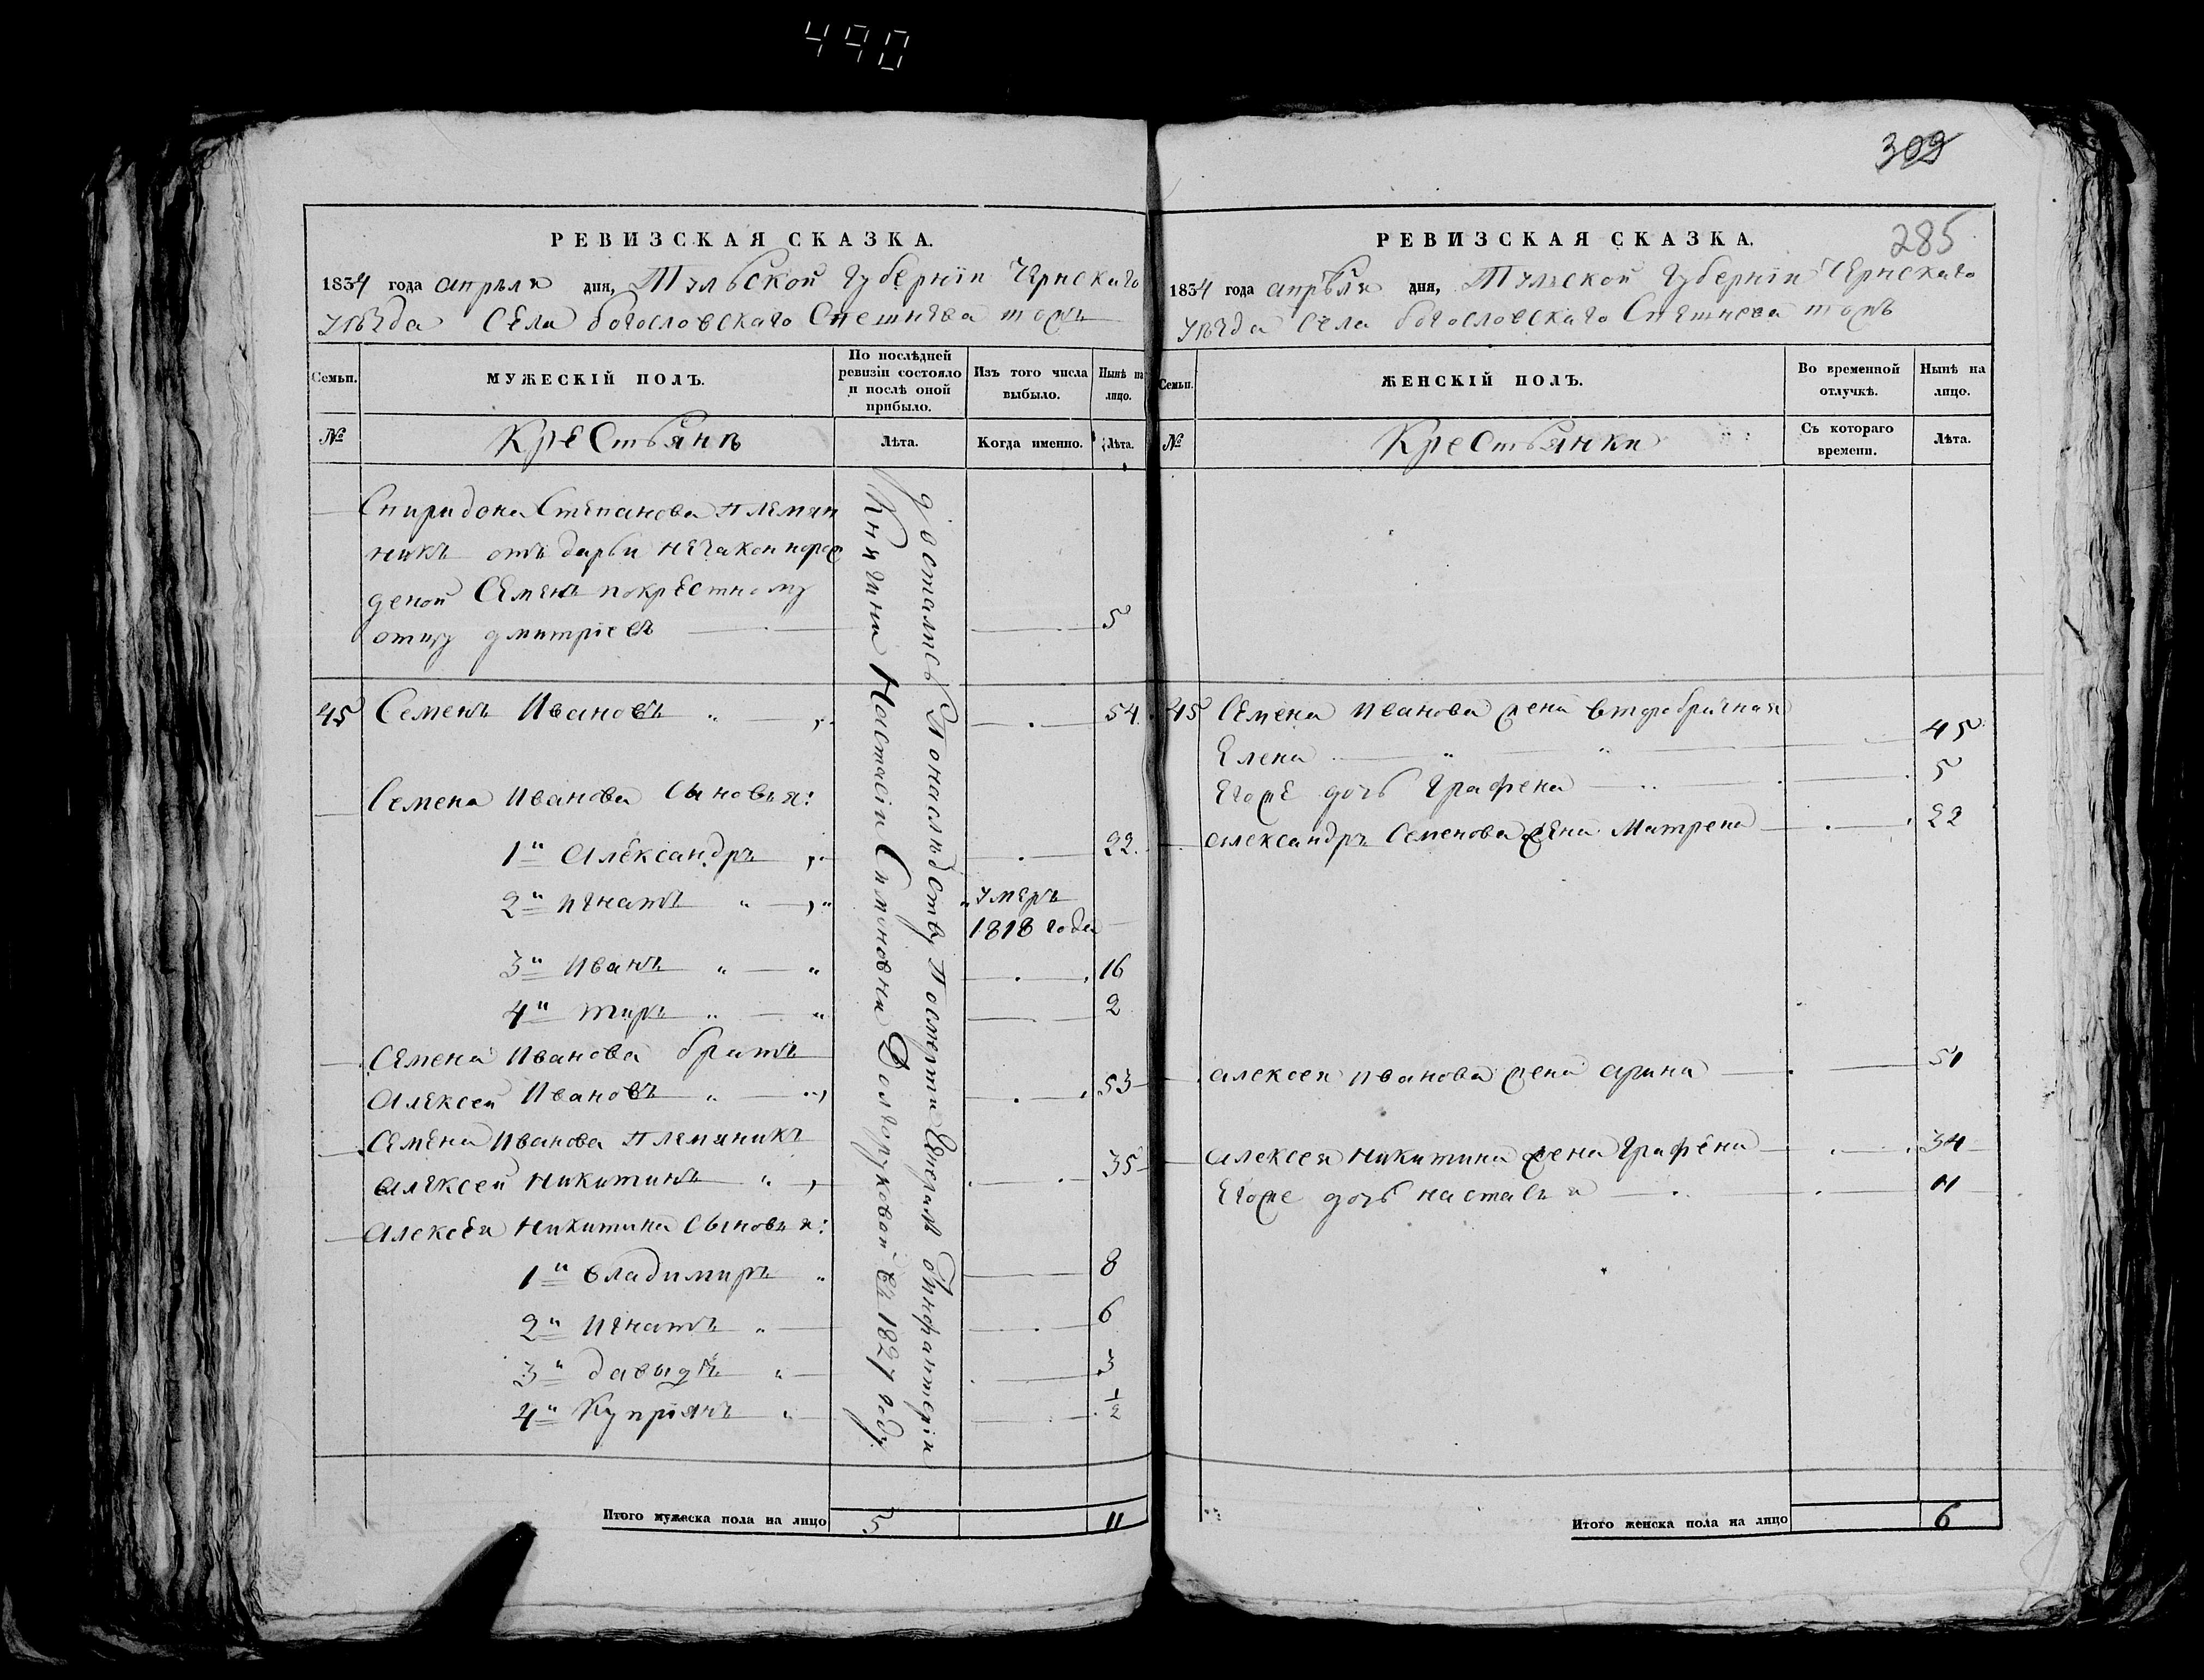 490
309
РЕВИЗСКАЯ СКАЗКА.
1834 года апреля дня, Тульской губернiи Чернскаго
уѣзда Села богословскаго Спешнева тожъ
Семьи.
МУЖЕСКІЙ ПОЛЪ.
По послѣдней ревизіи состояло и послѣ оной прибыло.
Изъ того числа выбыло.
Нынѣ на лицо.
№
Крестьянѣ
Лѣта.
Когда именно.
Лѣта.
Спиридона Степанова племян
никъ отъ дарьи незаконнорож
деной Семенъ покрестному
отцу дмитріевъ 5
45 Семенъ Ивановъ 54
Семена Иванова Сыновья:
1й Александръ 22
2й Игнатъ умеръ
1818 года
3й Иванъ 16
4й тиръ 2
Семена Иванова братъ
Алексей Ивановъ 53
Семена Иванова Племяникъ
Алексей Никитинъ 35
Алексея Никитина Сыновья:
1й владимиръ 8
2й Игнатъ 6
3й давыдъ 3
4й Купріянъ 1/2
досталисъ Понаследству Посмерти Генерала Отинфантерiи
Княгини Настасiи Симоновни Долгоруковой въ 1827 году
Итого мужеска пола на лицо 5 11
РЕВИЗСКАЯ СКАЗКА.
285
1834 года апрѣля дня, Тульской Губернiи Чернскаго
уѣзда Села богословскаго Спешнева тожъ
Семьи.
ЖЕНСКІЙ ПОЛЪ.
Во временной отлучкѣ.
Нынѣ на лицо.
№
Крестьянки
Съ котораго времени.
Лѣта.
45 Семена Иванова жена второбрачная
Елена 45
Егоже дочь Графена 5
Александръ Семенова жена Матрена 22
алексея иванова жена арина 51
алексея никитина жена Графена 34
Егоже дочь настасья 11
Итого женска пола на лицо 6